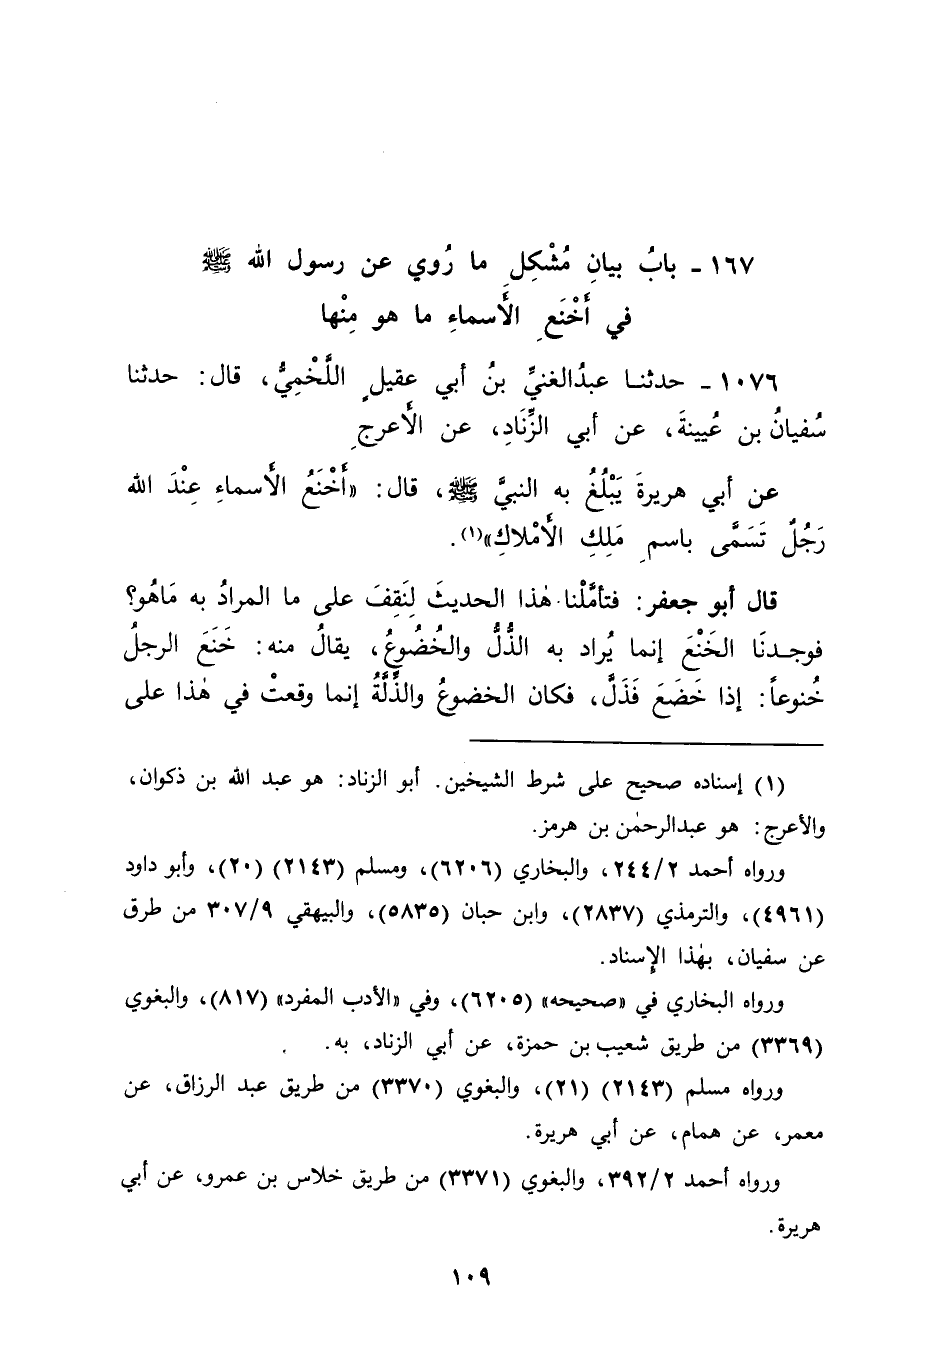 ١٦٧ - بابُ بيانِ مُشْكِلِ ما رُوي عن رسول الله ﷺ
في أَخْنَعِ الأَسماءِ ما هو مِنْها
١٠٧٦ - حدثنا عبدُالغنيِّ بنُ أبي عقيلٍ اللَّخْمِيُّ، قال: حدثنا
سُفيانُ بن عُيينةَ، عن أبي الزِّنَادِ، عن الأَعرجِ
عن أبي هريرةَ يَبْلُغُ به النبيَّ ﷺ، قال: «أَخْنَعُ الأَسماءِ عِنْدَ الله
رَجُلٌ تَسَمَّى باسمِ مَلِكِ الأَمْلاكِ»(١).
قال أبو جعفر: فتأمَّلْنا هٰذا الحديثَ لِنَقِفَ على ما المرادُ به مَاهُو؟
فوجدنَا الخَنْعَ إنما يُراد به الذُّلُّ والخُضُوعُ، يقالُ منه: خَنَعَ الرجلُ
خُنوعاً: إذا خَضَعَ فَذَلَّ، فكان الخضوعُ والذِّلَّةُ إنما وقعتْ في هٰذا على
(١) إسناده صحيح على شرط الشيخين. أبو الزناد: هو عبد الله بن ذكوان،
والأعرج: هو عبدالرحمٰن بن هرمز.
ورواه أحمد ٢/٢٤٤، والبخاري (٦٢٠٦)، ومسلم (٢١٤٣) (٢٠)، وأبو داود
(٤٩٦١)، والترمذي (٢٨٣٧)، وابن حبان (٥٨٣٥)، والبيهقي ٩/٣٠٧ من طرق
عن سفيان، بهٰذا الإسناد.
ورواه البخاري في «صحيحه» (٦٢٠٥)، وفي «الأدب المفرد» (٨١٧)، والبغوي
(٣٣٦٩) من طريق شعيب بن حمزة، عن أبي الزناد، به.
ورواه مسلم (٢١٤٣) (٢١)، والبغوي (٣٣٧٠) من طريق عبد الرزاق، عن
معمر، عن همام، عن أبي هريرة.
ورواه أحمد ٢/٣٩٢، والبغوي (٣٣٧١) من طريق خلاس بن عمرو، عن أبي
هريرة.
١٠٩